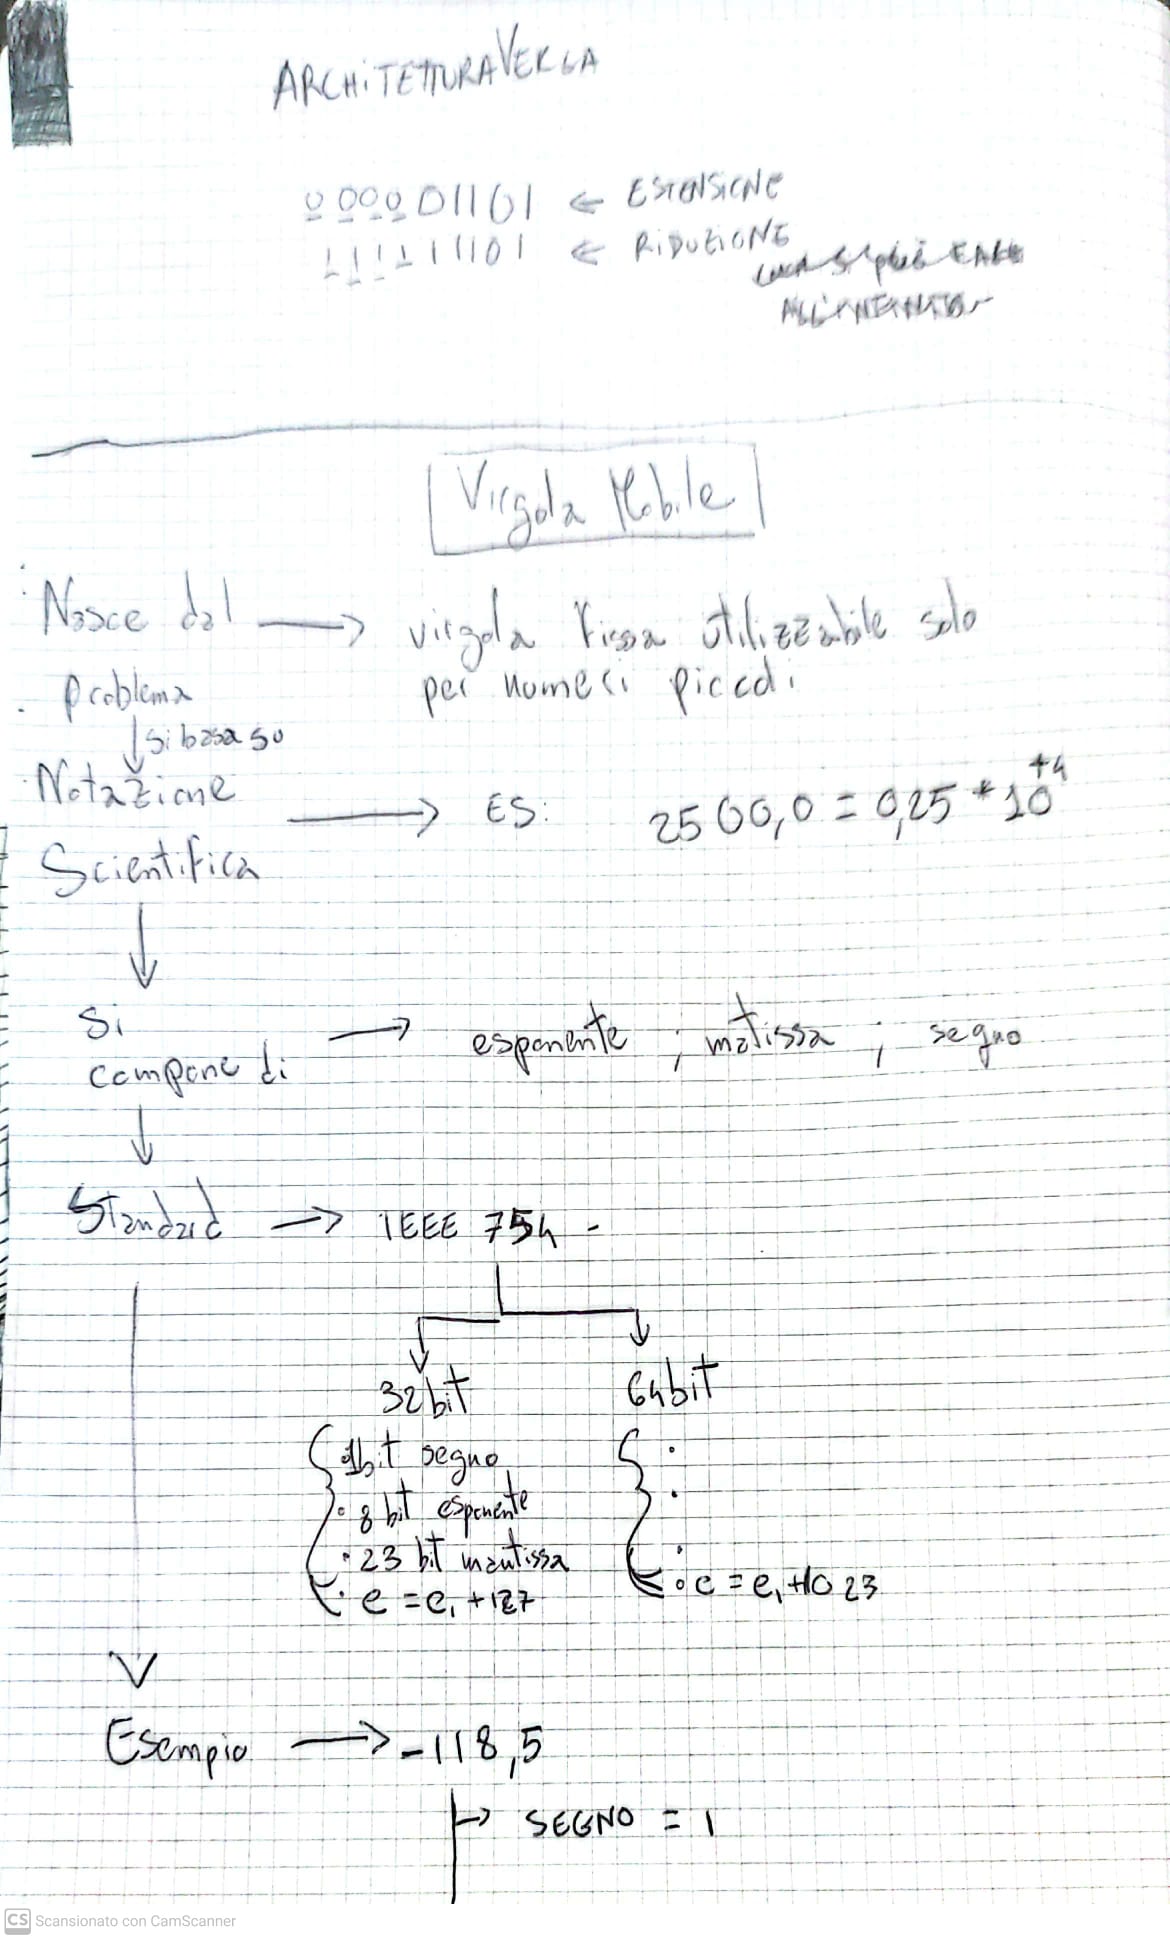 ARCHiTETTURA VERGA
000001101 ← ESTENSIONE
111111101 ← RiDUZIONE
Virgola Mobile
Nasce dal → virgola fissa utilizzabile solo
problema per numeri piccoli
↓ si basa su
Notazione → ES: 2500,0 = 0,25 * 10+4
Scientifica
↓
Si → esponente ; matissa ; segno
compone di
↓
Standard → IEEE 754 -
32 bit 64 bit
1 bit segno
• 8 bit esponente
• 23 bit mantissa
• e = e1 +127 • e = e1 +1023
Esempio → -118,5
→ SEGNO = 1
CS Scansionato con CamScanner